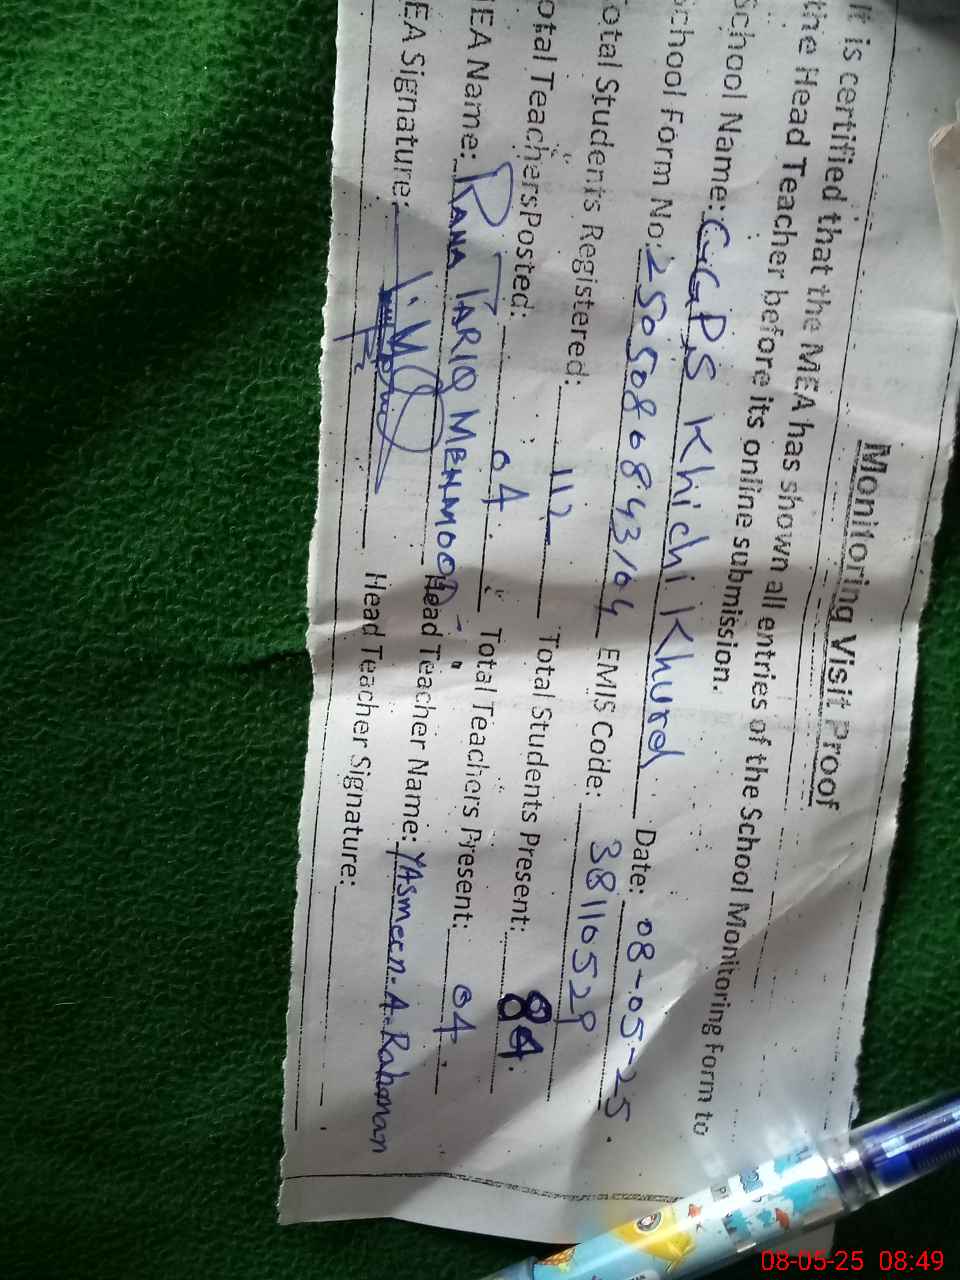 Monitoring Visit Proof
It is certified that the MEA has shown all entries of the School Monitoring Form to
the Head Teacher before its online submission.
School Name: GGPS Khichi Khurd Date: 08-05-25.
School Form No: EMIS Code: 38110529
Total Students Registered: 112 Total Students Present: 84.
Total TeachersPosted: 04. Total Teachers Present: 04
MEA Name: RANA TARIQ MEHMOOD Head Teacher Name: YASmeen.A.Rahman
EA Signature: Head Teacher Signature:
08-05-25 08:49